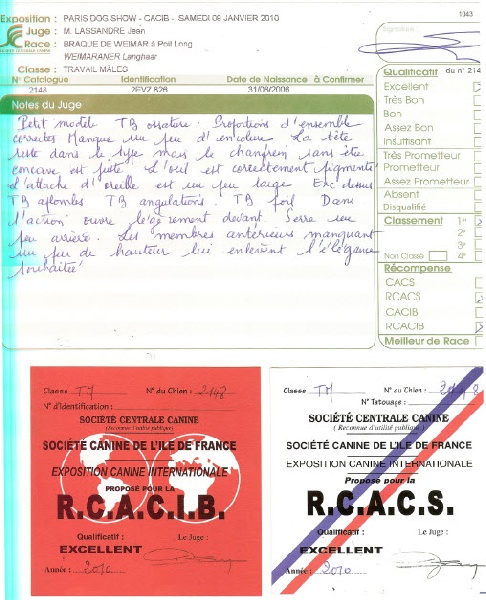 1043
Exposition : PARIS DOG SHOW - CACIB - SAMEDI 09 JANVIER 2010
Juge : M. LASSANDRE Jean
Race : BRAQUE DE WEIMAR à Poil Long
WEIMARANER Langhaar
Classe : TRAVAIL MÂLES
N° Catalogue Identification Date de Naissance à Confirmer
2148 2EVZ 826 31/08/2006
Signature :
Notes du Juge
Petit modèle TB ossature. Proportions d'ensemble
correctes Manque un peu d'encolure La tête
reste dans le type mais le chanfrein sans être
concave est juste L'oeil est correctement pigmenté
L'attache d'oreille est un peu large Exc dessus
TB aplombs TB angulations. TB poil Dans
l'action ouvre légèrement devant. Serre un
peu arrière. Les membres antérieurs manquant
un peu de hauteur lui enlèvent l'élégance
souhaitée
Qualificatif du n° 214
Excellent
Très Bon
Bon
Assez Bon
Insuffisant
Très Prometteur
Prometteur
Assez Prometteur
Absent
Disqualifié
Classement 1°
2°
3°
Non Classé 4°
Récompense
CACS
RCACS
CACIB
RCACIB
Meilleur de Race
Classe TM N° du Chien : 2148
N° d'Identification :
SOCIÉTÉ CENTRALE CANINE
(Reconnue d'utilité publique)
SOCIÉTÉ CANINE DE L'ILE DE FRANCE
EXPOSITION CANINE INTERNATIONALE
PROPOSÉ POUR LA
R.C.A.C.I.B.
Qualificatif : Le Juge :
EXCELLENT
Année : 2010
Classe TM N° du Chien : 2148
N° Tatouage :
SOCIÉTÉ CENTRALE CANINE
( Reconnue d'utilité publique )
SOCIÉTÉ CANINE DE L'ILE DE FRANCE
EXPOSITION CANINE INTERNATIONALE
Proposé pour la
R.C.A.C.S.
Qualificatif : Le Juge :
EXCELLENT
Année : 2010